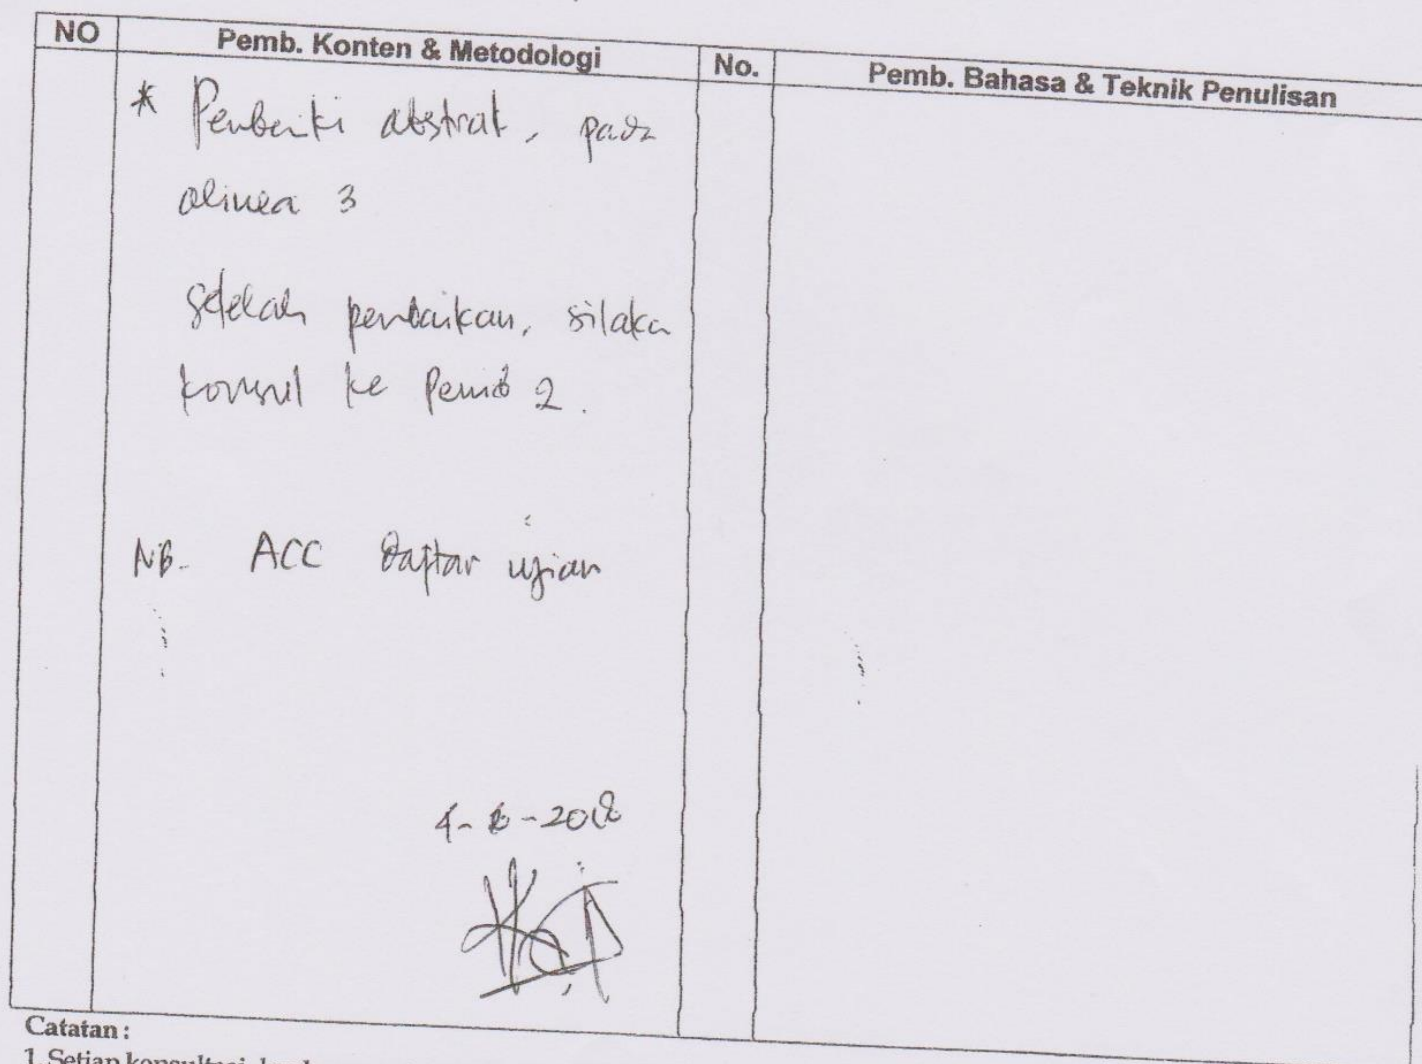 NO Pemb. Konten & Metodologi No. Pemb. Bahasa & Teknik Penulisan
* Perbaiki abstrak, pada
alinea 3
setelah perbaikan, silaka
konsul ke Pemb 2.
NB. ACC Daftar ujian
Catatan :
1. Setiap konsultasi